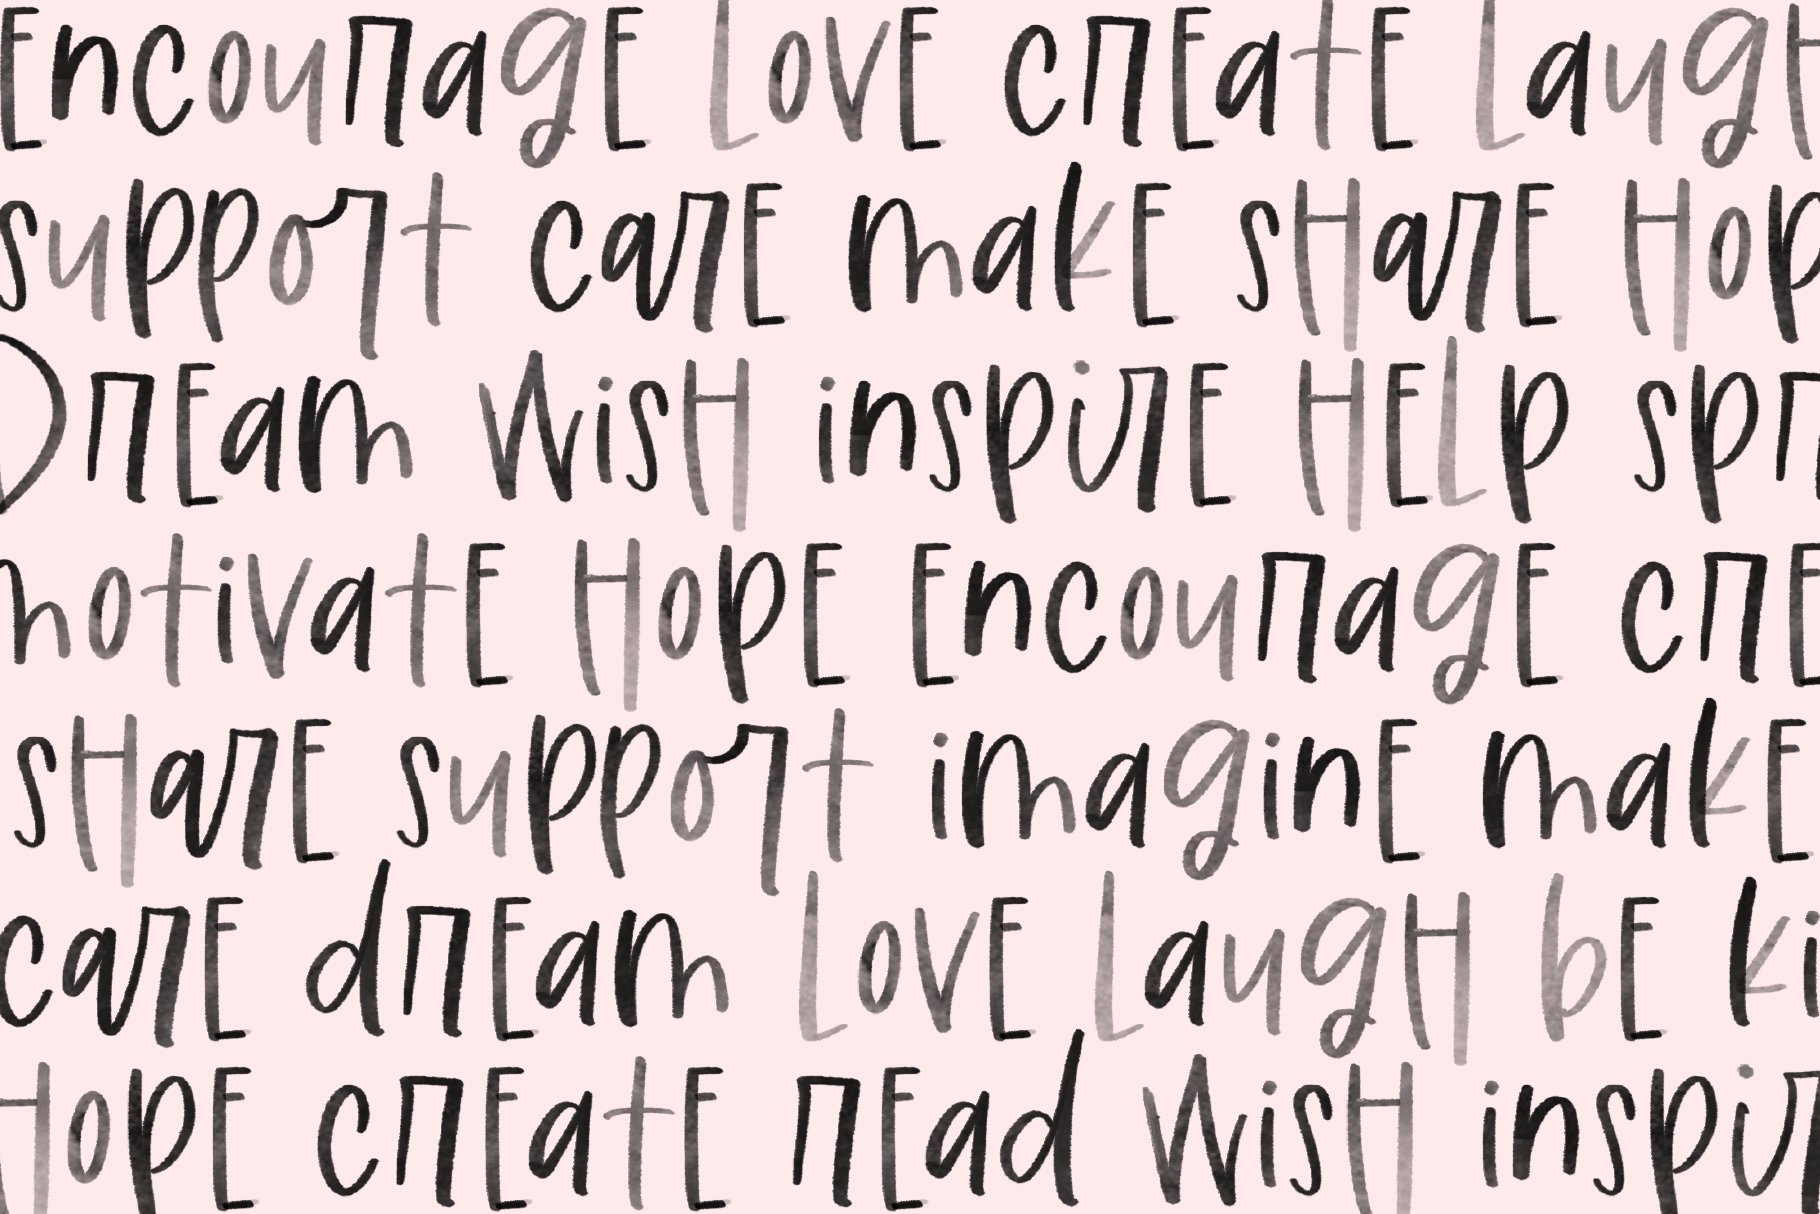 Encourage Love create Laugh
support care make share Hop
Dream Wish inspire Help spr
motivate Hope Encourage cre
share support imagine make
care dream Love Laugh be ki
Hope create read Wish inspir